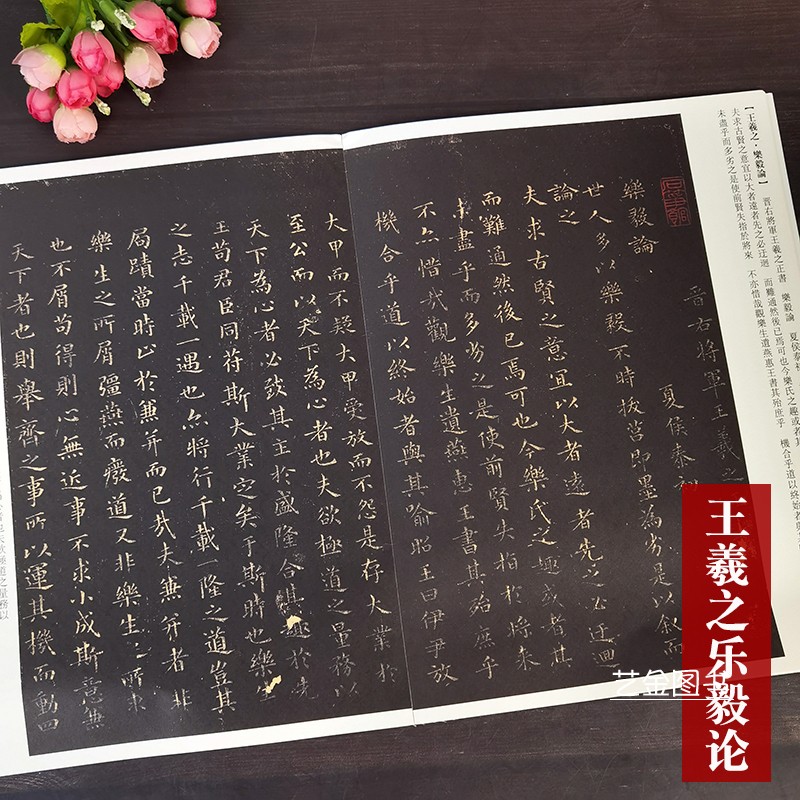 【王羲之·樂毅論】 晋右將軍王羲之正書 樂毅論 夏侯泰
夫求古賢之意宜以大者遠者先之必迂迴 而難通然後已焉可也今樂氏之趣或者其
未盡乎而多劣之是使前賢失指於將來 不亦惜哉觀樂生遺燕惠王書其殆庶乎 機合乎道以終始者
晉右將軍王羲之
樂毅論 夏侯泰
世人多以樂毅不時拔營即墨為劣是以叙而
論之
夫求古賢之意宜以大者遠者先之必迂迴
而難通然後已焉可也今樂氏之趣或者其
未盡乎而多劣之是使前賢失指於將來
不亦惜哉觀樂生遺燕惠王書其殆庶乎
機合乎道以終始者與其喻昭王曰伊尹放
大甲而不疑大甲受放而不怨是存大業於
至公而以天下為心者也夫欲極道之量務以
天下為心者必致其主於盛隆合其趣於先
王苟君臣同符斯大業定矣于斯時也樂生
之志千載一遇也亦將行千載一隆之道豈其
局蹟當時止於兼并而已哉夫兼并者非
樂生之所屑彊燕而廢道又非樂生之所求
也不屑苟得則心無近事不求小成斯意兼
天下者也則舉齊之事所以運其機而動四
王羲之乐毅论
艺金图书